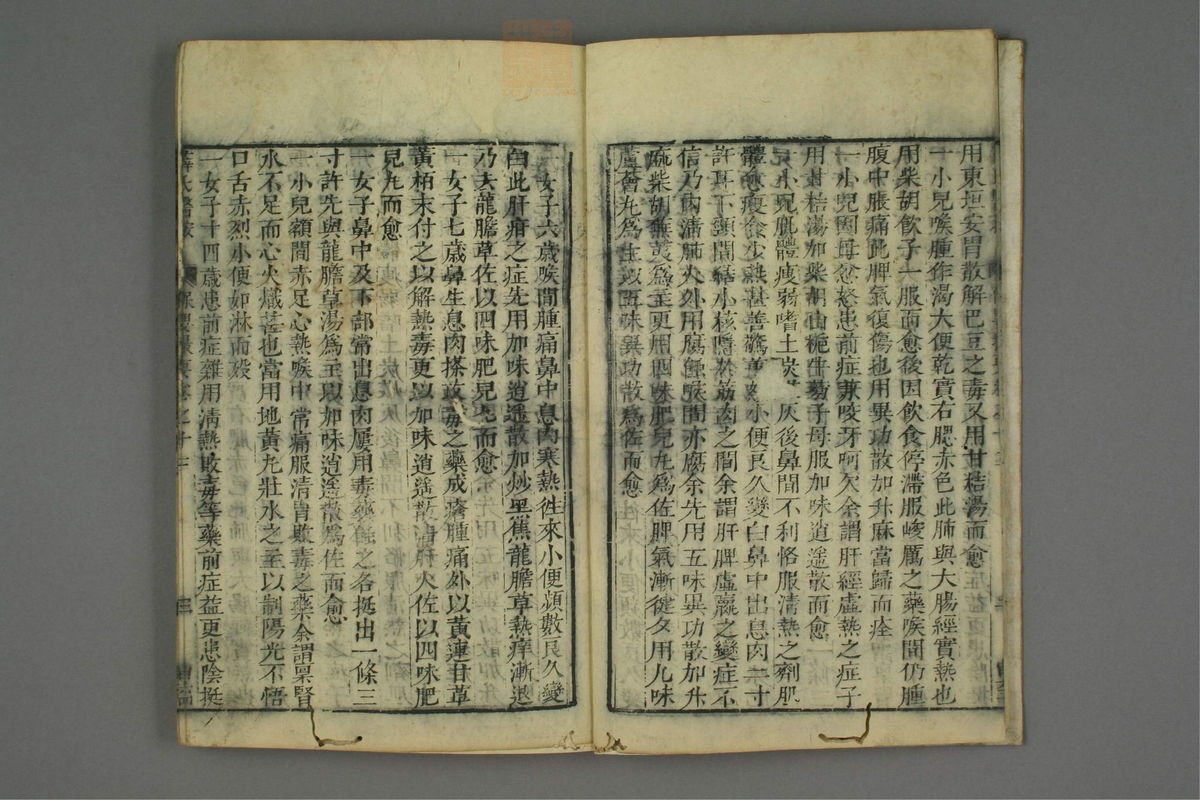 用東垣安胃散解巴豆之毒又用甘桔湯而愈
一小兒喉腫作渴大便乾實右腮赤色此肺與大腸經實熱也
用柴胡飲子一服而愈後因飲食停滯服峻厲之藥喉間仍腫
腹中脹痛此脾氣復傷也用異功散加升麻當歸而痊
一小兒因母忿怒患前症兼咬牙呵欠余謂肝經虛熱之症子
用甘桔湯加柴胡山梔牛蒡子母服加味逍遙散而愈
一小兒肌體瘦弱嗜土炭 灰後鼻間不利恪服清熱之劑肌
體愈瘦食少熱甚善驚 小便良久變白鼻中出息肉二寸
許耳下頸間結小核隱於筋肉之間余謂肝脾虛羸之變症不
信乃內清肺火外用腐 喉間亦腐余先用五味異功散加升
麻柴胡蕪荑爲主更用四味肥兒丸爲佐脾氣漸健夕用九味
蘆薈丸爲主以五味異功散爲佐而愈
一女子六歲喉間腫痛鼻中息肉寒熱往來小便頻數良久變
白此肝疳之症先用加味逍遙散加炒黑蕉龍膽草熱痒漸退
乃去龍膽草佐以四味肥兒 而愈
一女子七歲鼻生息肉搽敗毒之藥成瘡腫痛外以黃連甘草
黃柏末付之以解熱毒更以加味逍遙散清肝火佐以四味肥
兒丸而愈
一女子鼻中及下部常出息肉屢用毒藥 之各挺出一條三
寸許先與龍膽草湯爲主以加味逍遙散爲佐而愈
一小兒額間赤足心熱喉中常痛服清胃敗毒之藥余謂稟腎
水不足而心火熾甚也當用地黃丸壯水之主以制陽光不悟
口舌赤烈小便如淋而歿
一女子十四歲患前症雜用清熱敗毒等藥前症益更患陰挺